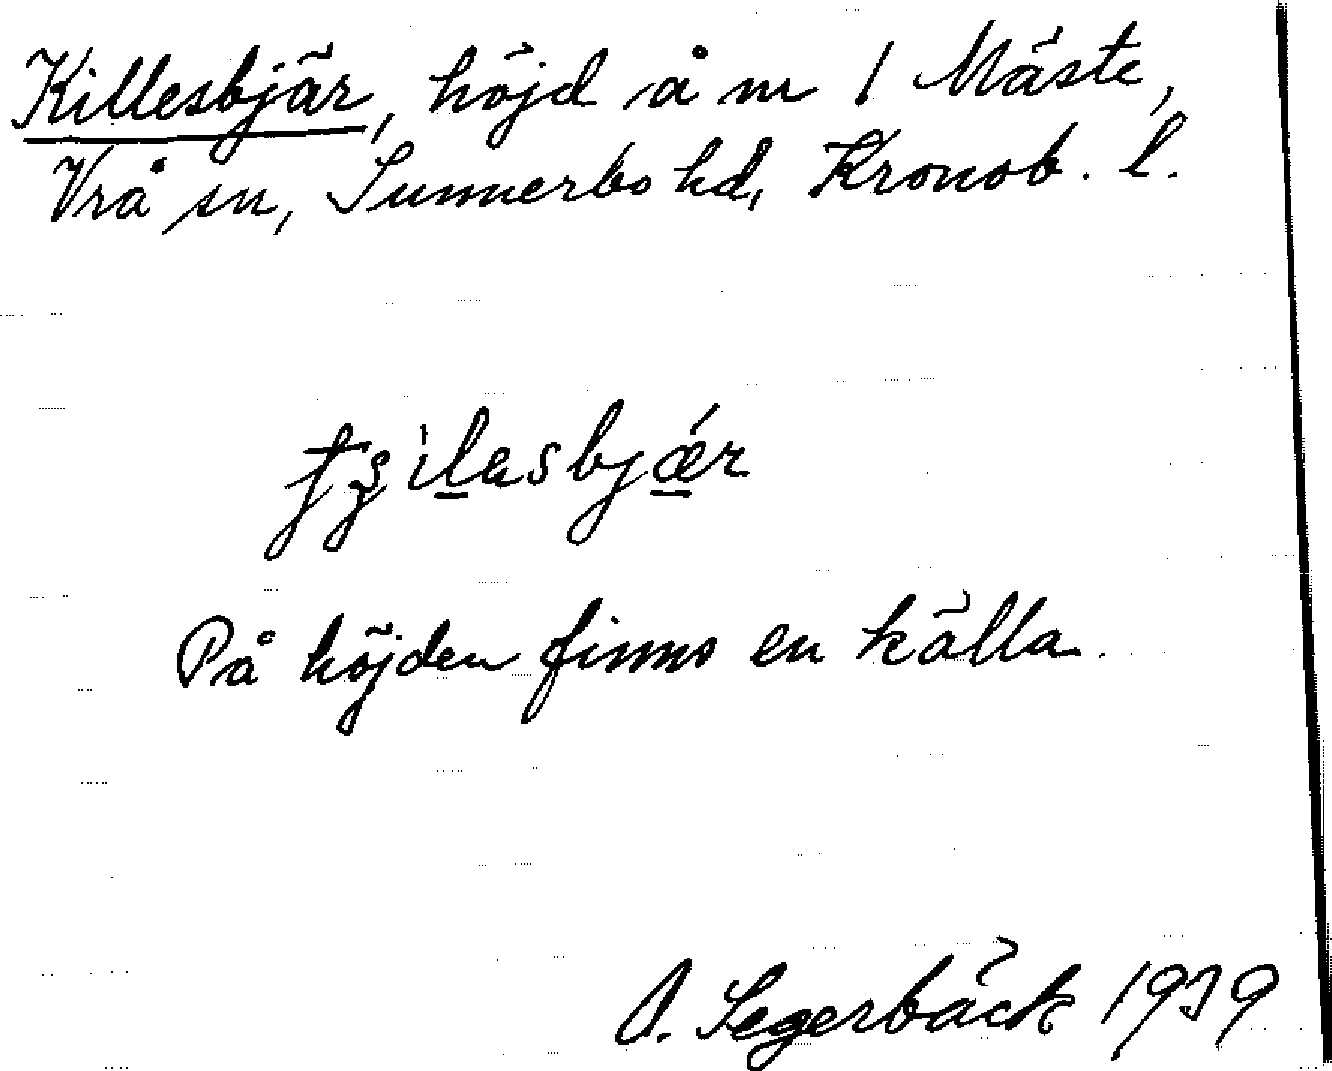 Killesbjär, höjd å m 1 Mäste,
Vrå sn, Sunnerbo hd, Kronob. l.
På höjden finns en källa.
A. Segerbäck 1939